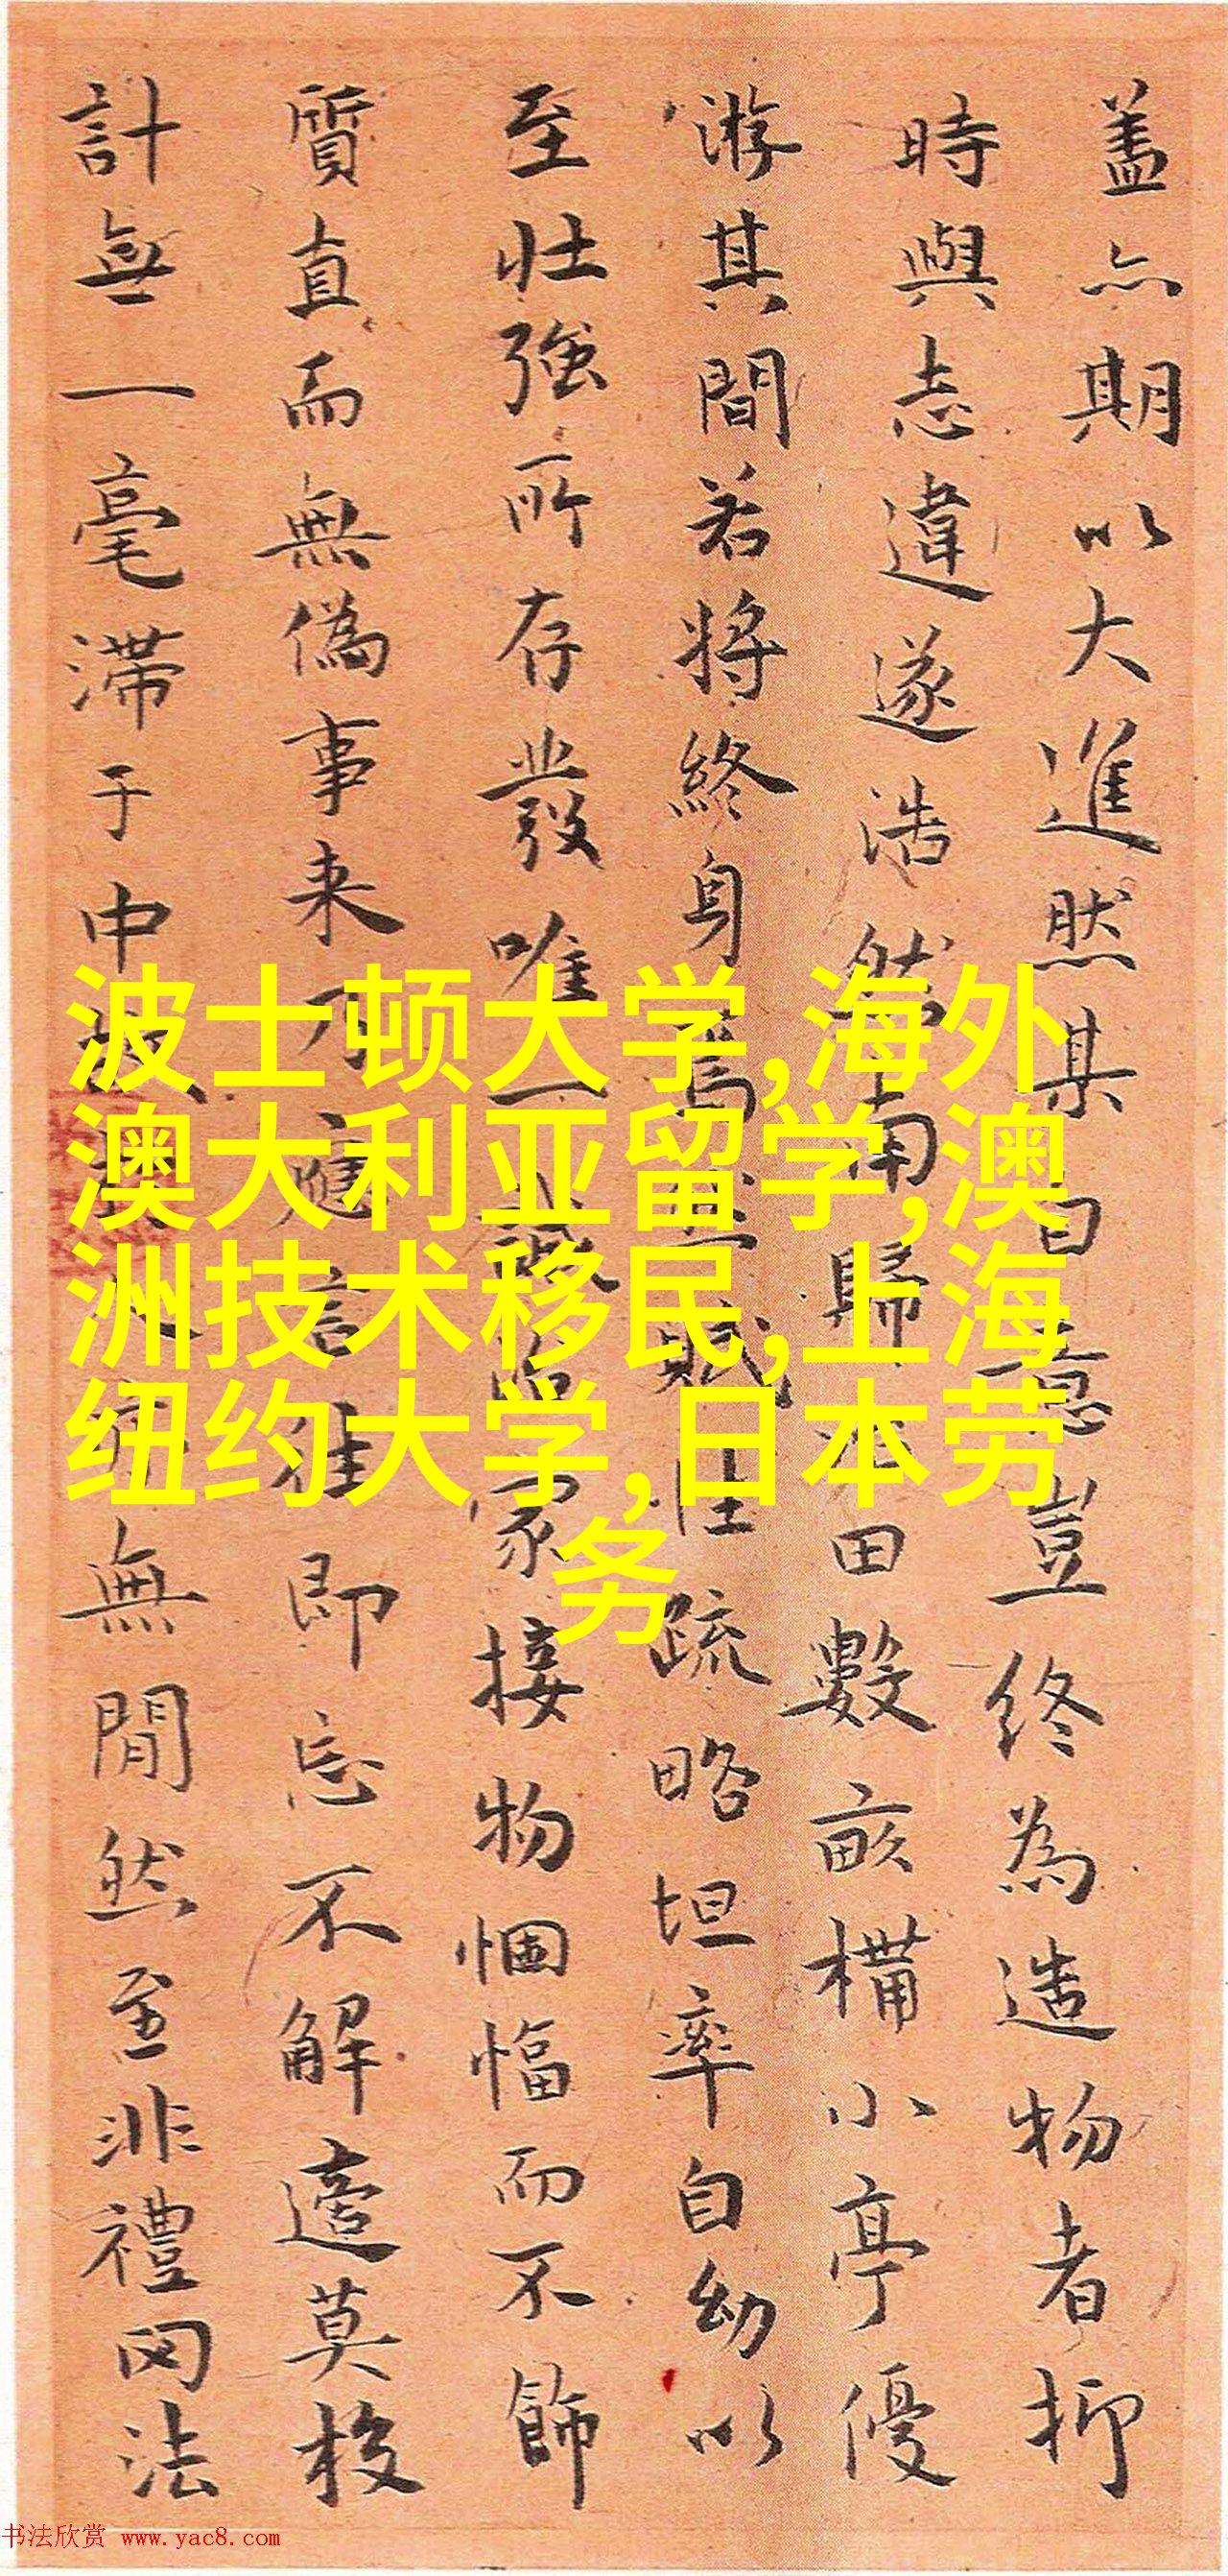 盖亦期以大進然某自意豈終為造物者抑
時與志違遂浩然南歸田數畝構小亭優
游其間若將終身焉其賦性疏略坦率自幼以
至壯強所存發唯一誠家接物悃愊而不飾
質直而無偽事来乃應言往即忘不解邅莫校
計無一毫滞于中無間然至非禮网法
波士顿大学,海外
澳大利亚留学,澳
洲技术移民,上海
纽约大学,日本劳
务
书法欣赏 www.yac8.com